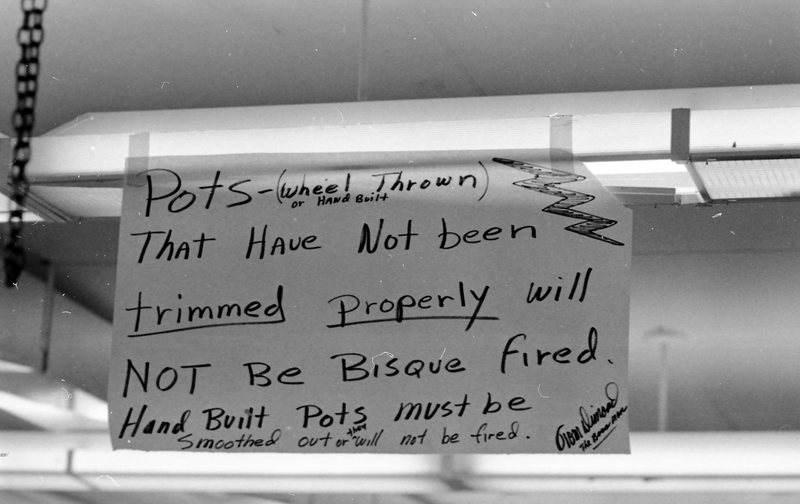 Pots - (wheel Thrown)
or Hand Built
That Have Not been
trimmed properly will
NOT Be Bisque fired.
Hand Built Pots must be
they
smoothed out or will not be fired.
The Boss Man